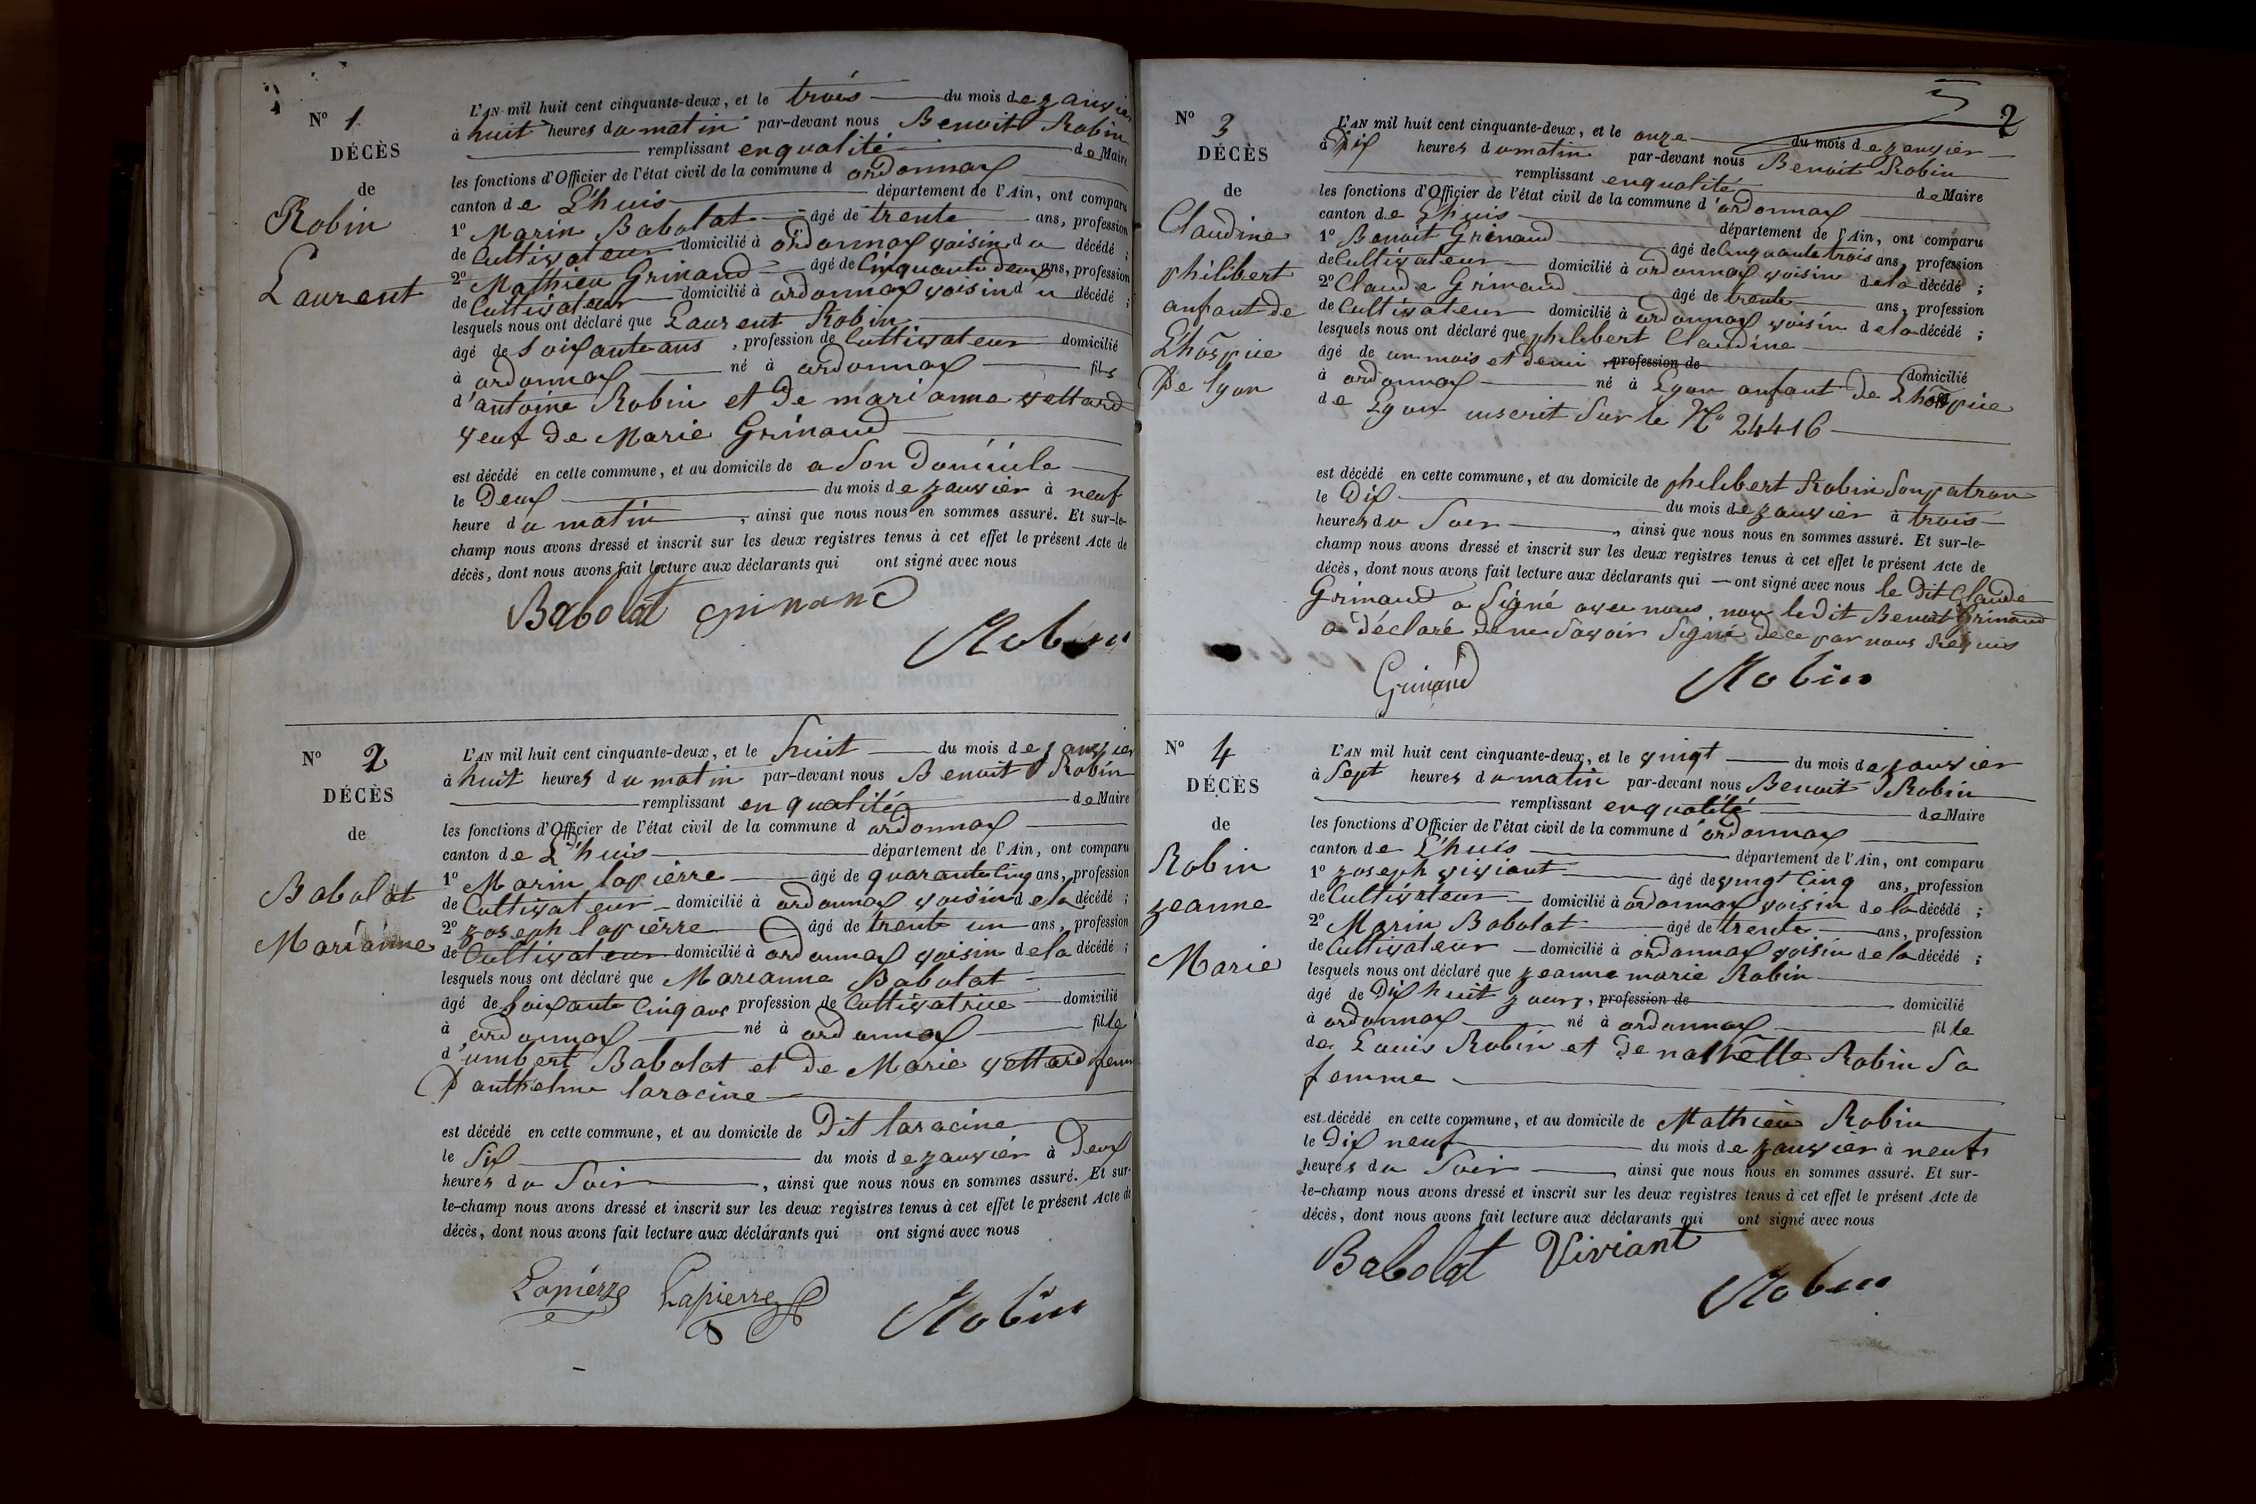 Nº 1
DÉCÈS
de
Robin
Laurent
L'AN mil huit cent cinquante-deux, et le trois du mois de janvier
à huit heures du matin par-devant nous Benoit Robin
remplissant en qualité de Maire
les fonctions d'Officier de l'état civil de la commune d ordonnax
canton de L'huis département de l'Ain, ont comparu
1º Marin Babolat âgé de trente ans, profession
de Cultivateur domicilié à ordonnax voisin du décédé ;
2º Mathieu Grinand âgé de Cinquante deux ans, profession
de Cultivateur domicilié à ordonnax voisin du décédé ;
lesquels nous ont déclaré que Laurent Robin
âgé de soixante ans, profession de Cultivateur domicilié
à ordonnax né à ordonnax fils
d'antoine Robin et de marianne vettard
veuf de Marie Grinand
est décédé en cette commune, et au domicile de a son Domicile
le Deux du mois de janvier à neuf
heure du matin, ainsi que nous nous en sommes assuré. Et sur-le-
champ nous avons dressé et inscrit sur les deux registres tenus à cet effet le présent Acte de
décès, dont nous avons fait lecture aux déclarants qui ont signé avec nous
Babolat grinand
Robin
Nº 2
DÉCÈS
de
Babolat
Marianne
L'AN mil huit cent cinquante-deux, et le huit du mois de janvier
à huit heures du matin par-devant nous Benoit Robin
remplissant en qualité de Maire
les fonctions d'Officier de l'état civil de la commune d ordonnax
canton de L'huis département de l'Ain, ont comparu
1º Marin lapierre âgé de quarante Cinq ans, profession
de Cultivateur domicilié à ordonnax voisin de la décédé ;
2º joseph lapierre âgé de trente un ans, profession
de Cultivateur domicilié à ordonnax voisin de la décédé ;
lesquels nous ont déclaré que Marianne Babolat
âgé de soixante Cinq ans profession de Cultivatrice domicilié
à ordonnax né à ordonnax fille
d'umbert Babolat et de Marie vettard femme
D'anthelme laracine
est décédé en cette commune, et au domicile de Dit laracine
le six du mois de janvier à Deux
heures du Soir, ainsi que nous nous en sommes assuré. Et sur-
le-champ nous avons dressé et inscrit sur les deux registres tenus à cet effet le présent Acte de
décès, dont nous avons fait lecture aux déclarants qui ont signé avec nous
Lapierre Lapierre Robin
2
Nº 3
DÉCÈS
de
Claudine
philibert
anfant de
L'hospice
De lyon
L'AN mil huit cent cinquante-deux, et le onze du mois de janvier
à Dix heures du matin par-devant nous Benoit Robin
remplissant en qualité de Maire
les fonctions d'Officier de l'état civil de la commune d'ordonnax
canton de L'huis département de l'Ain, ont comparu
1º Benoit Grinand âgé de Cinquante trois ans, profession
de Cultivateur domicilié à ordonnax voisin de la décédé ;
2º Claude Grinand âgé de trente ans, profession
de Cultivateur domicilié à ordonnax voisin de la décédé ;
lesquels nous ont déclaré que philibert Claudine
âgé de un mois et demi profession de domicilié
à ordonnax né à Lyon anfant de L'hospice
de Lyon inscrit sur le Nº 24416
est décédé en cette commune, et au domicile de philibert Robin son patron
le Dix du mois de janvier à trois
heures du Soir, ainsi que nous nous en sommes assuré. Et sur-le-
champ nous avons dressé et inscrit sur les deux registres tenus à cet effet le présent Acte de
décès, dont nous avons fait lecture aux déclarants qui ont signé avec nous le Dit Claude
Grinand a signé avec nous non le dit Benoit Grinand
a déclaré de ne savoir signé de ce par nous Requis
Grinand Robin
Nº 4
DÉCÈS
de
Robin
jeanne
Marie
L'AN mil huit cent cinquante-deux, et le vingt du mois de janvier
à Sept heures du matin par-devant nous Benoit Robin
remplissant en qualité de Maire
les fonctions d'Officier de l'état civil de la commune d'ordonnax
canton de L'huis département de l'Ain, ont comparu
1º joseph viviant âgé de vingt Cinq ans, profession
de Cultivateur domicilié à ordonnax voisin de la décédé ;
2º Marin Babolat âgé de trente ans, profession
de Cultivateur domicilié à ordonnax voisin de la décédé ;
lesquels nous ont déclaré que jeanne marie Robin
âgé de Dix huit jours, profession de domicilié
à ordonnax né à ordonnax fille
de Louis Robin et de Robin Sa
femme
est décédé en cette commune, et au domicile de Mathieu Robin
le Dix neuf du mois de janvier à neuf
heures du Soir, ainsi que nous nous en sommes assuré. Et sur-
le-champ nous avons dressé et inscrit sur les deux registres tenus à cet effet le présent Acte de
décès, dont nous avons fait lecture aux déclarants qui ont signé avec nous
Babolat Viviant
Robin